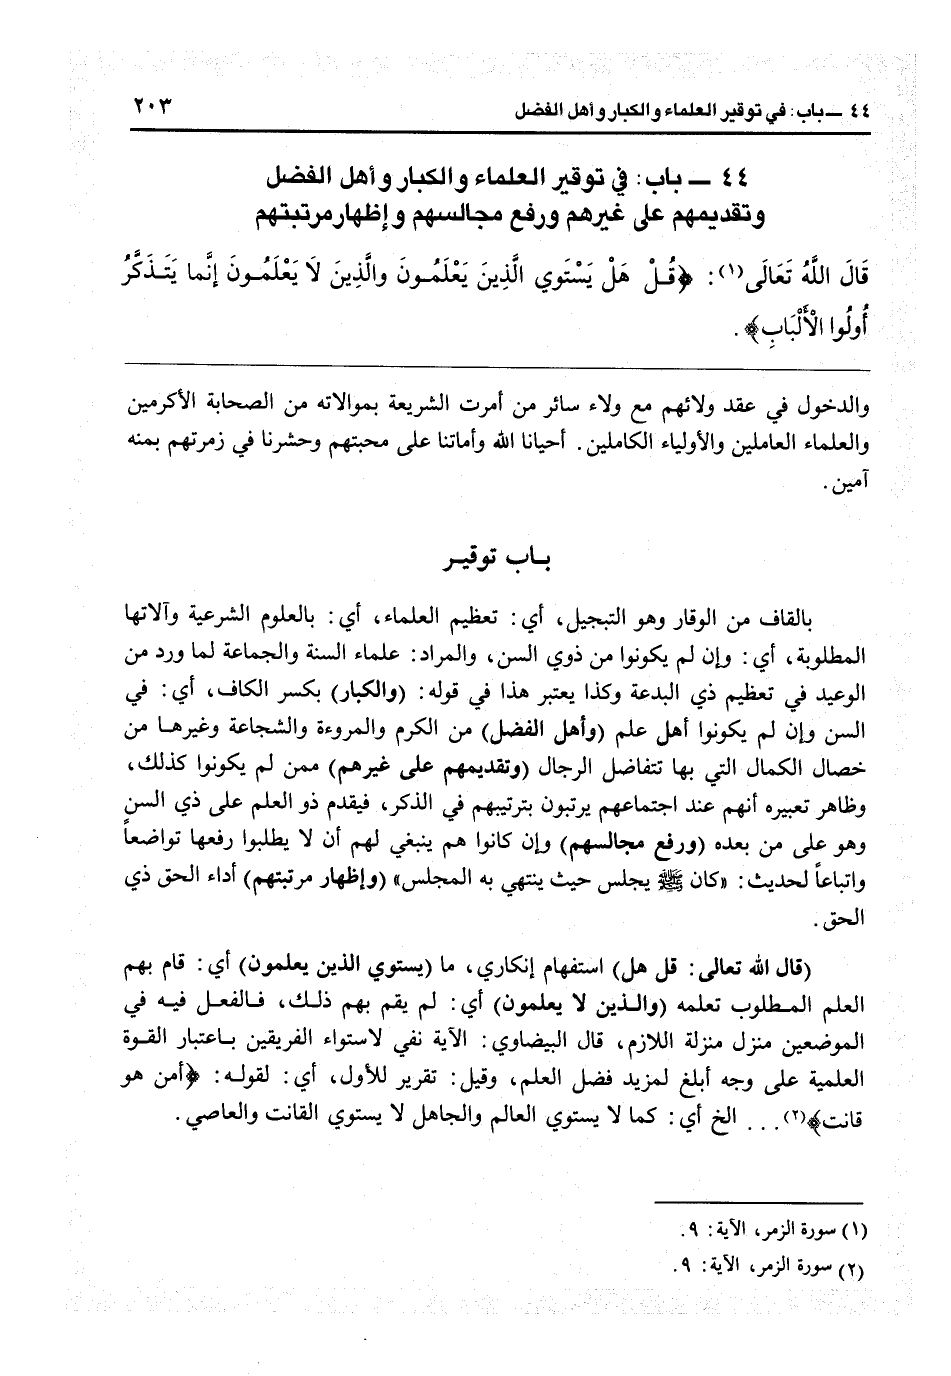 ٤٤ ــ باب: في توقير العلماء والكبار وأهل الفضل ٢٠٣
٤٤ ــ باب: في توقير العلماء والكبار وأهل الفضل
وتقديمهم على غيرهم ورفع مجالسهم وإظهار مرتبتهم
قَالَ اللَّهُ تَعَالَى(١): ﴿قُلْ هَلْ يَسْتَوِي الَّذِينَ يَعْلَمُونَ والَّذِينَ لَا يَعْلَمُونَ إِنَّما يَتَذَكَّرُ
أُولُوا الْأَلْبَابِ﴾.
والدخول في عقد ولائهم مع ولاء سائر من أمرت الشريعة بموالاته من الصحابة الأكرمين
والعلماء العاملين والأولياء الكاملين. أحيانا الله وأماتنا على محبتهم وحشرنا في زمرتهم بمنه
آمين.
باب توقير
بالقاف من الوقار وهو التبجيل، أي: تعظيم العلماء، أي: بالعلوم الشرعية وآلاتها
المطلوبة، أي: وإن لم يكونوا من ذوي السن، والمراد: علماء السنة والجماعة لما ورد من
الوعيد في تعظيم ذي البدعة وكذا يعتبر هذا في قوله: (والكبار) بكسر الكاف، أي: في
السن وإن لم يكونوا أهل علم (وأهل الفضل) من الكرم والمروءة والشجاعة وغيرها من
خصال الكمال التي بها تتفاضل الرجال (وتقديمهم على غيرهم) ممن لم يكونوا كذلك،
وظاهر تعبيره أنهم عند اجتماعهم يرتبون بترتيبهم في الذكر، فيقدم ذو العلم على ذي السن
وهو على من بعده (ورفع مجالسهم) وإن كانوا هم ينبغي لهم أن لا يطلبوا رفعها تواضعاً
واتباعاً لحديث: «كان ﷺ يجلس حيث ينتهي به المجلس» (وإظهار مرتبتهم) أداء الحق ذي
الحق.
(قال الله تعالى: قل هل) استفهام إنكاري، ما (يستوي الذين يعلمون) أي: قام بهم
العلم المطلوب تعلمه (والذين لا يعلمون) أي: لم يقم بهم ذلك، فالفعل فيه في
الموضعين منزل منزلة اللازم، قال البيضاوي: الآية نفي لاستواء الفريقين باعتبار القوة
العلمية على وجه أبلغ لمزيد فضل العلم، وقيل: تقرير للأول، أي: لقوله: ﴿أمن هو
قانت﴾(٢)... الخ أي: كما لا يستوي العالم والجاهل لا يستوي القانت والعاصي.
(١) سورة الزمر، الآية: ٩.
(٢) سورة الزمر، الآية: ٩.